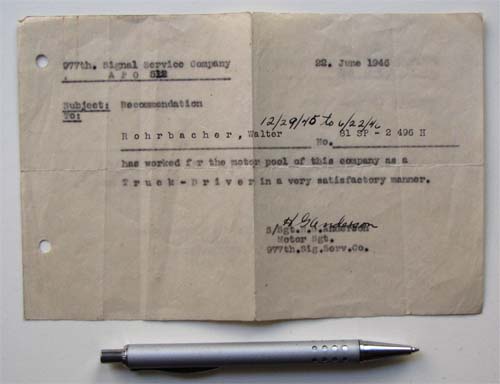 977th. Signal Service Company 22. June 1946
A P O 512
Subject: Recommendation
To:
12/29/45 to 6/22/46
Rohrbacher, Walter No. 81 SP - 2 496 H
has worked for the motor pool of this company as a
Truck-Driver in a very satisfactory manner.
H G Anderson
S/Sgt. Anderson
Motor Sgt.
977th.Sig.Serv.Co.